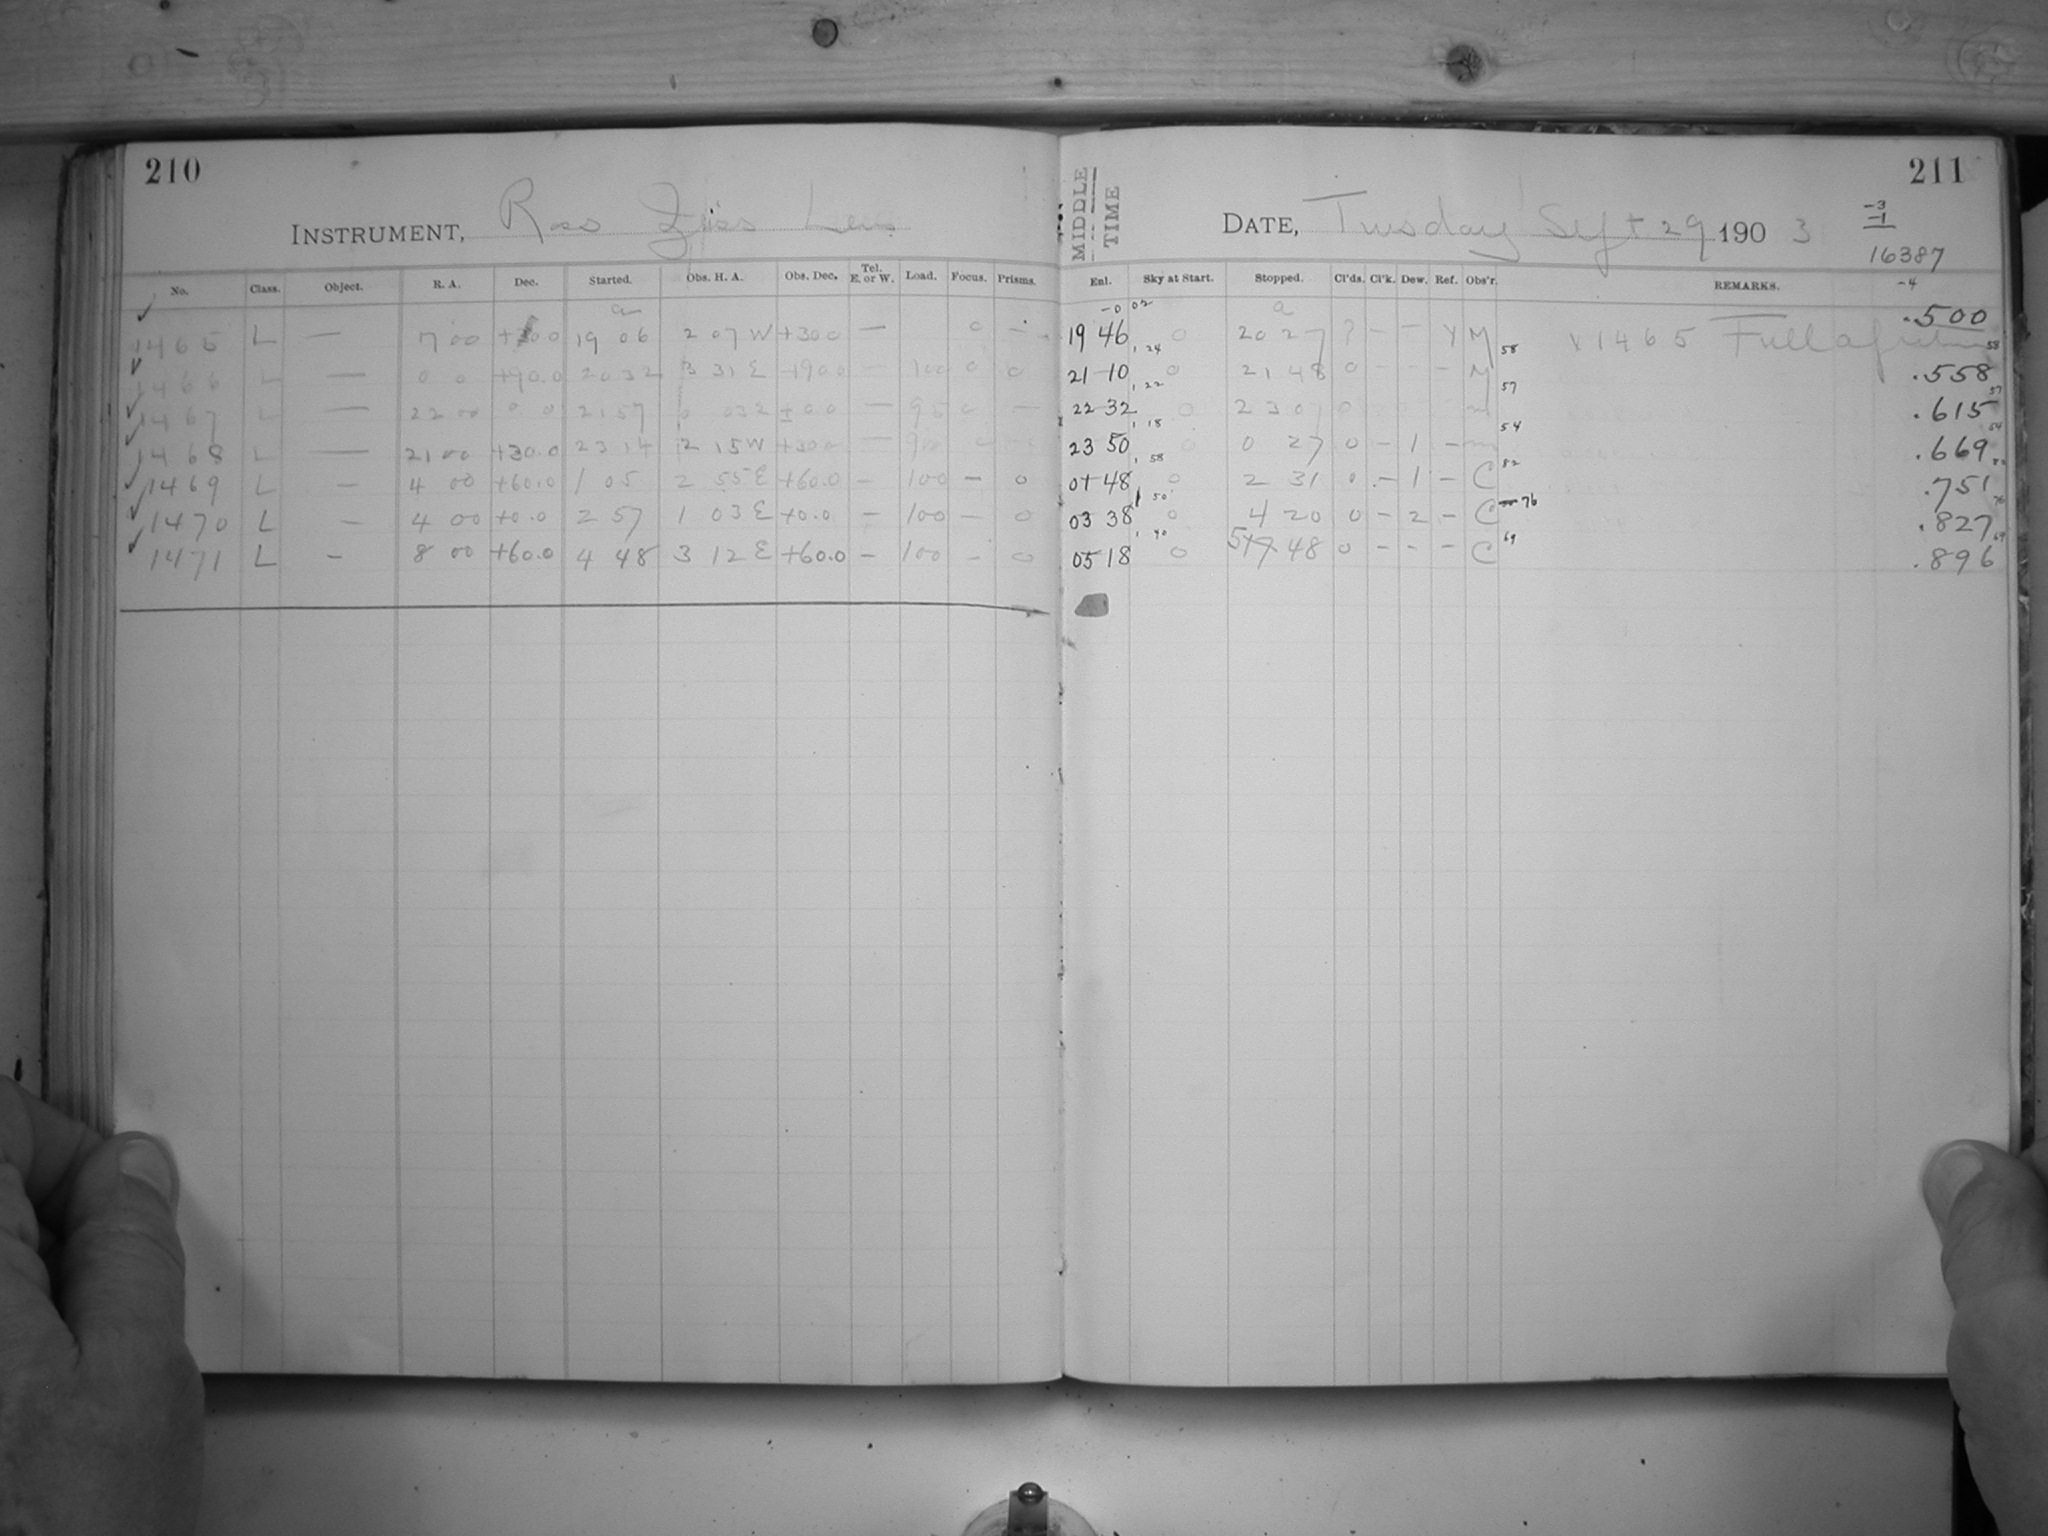 210
INSTRUMENT, Ross Zeiss Lens
No. Class. Object. R. A. Dec. Started. Obs. H. A. Obs. Dec. Tel. E. or W. Load. Focus. Prisms.
a
1465 L — 7 00 +30.0 19 06 2 07 W +300 — 0 —
1466 L — 0 0 +90.0 2032 3 31 E +900 — 100 0 0
1467 L — 22 00 0 0 2157 0 03 E ± 0.0 — 95 0 —
1468 L — 21 00 +30.0 23 14 2 15 W +300 —
1469 L — 4 00 +60.0 1 05 2 55 E +60.0 — 100 — 0
1470 L — 4 00 +0.0 2 57 1 03 E +0.0 — 100 — 0
1471 L — 8 00 +60.0 4 48 3 12 E +60.0 — 100 — 0
211
MIDDLE TIME
DATE, Tuesday Sept 29 1903
-3
-1
16387
Enl. Sky at Start. Stopped. Cl'ds. Cl'k. Dew. Ref. Obs'r. REMARKS.
-4
-0 02 a .500
19 46 0 20 27 ? — — Y M x 1465 Full
1 24 58 58
21 10 0 21 48 0 - - - M .558
1 22 57 57
22 32 0 2307 0 m .615
1 18 54 54
23 50 0 0 27 0 - 1 - m .669
1 58 82 82
01 48 0 2 31 0 - 1 - C .751
1 50 76 76
03 38 0 4 20 0 - 2 - C .827
1 40 69 69
05 18 0 5 48 0 - - - C .896